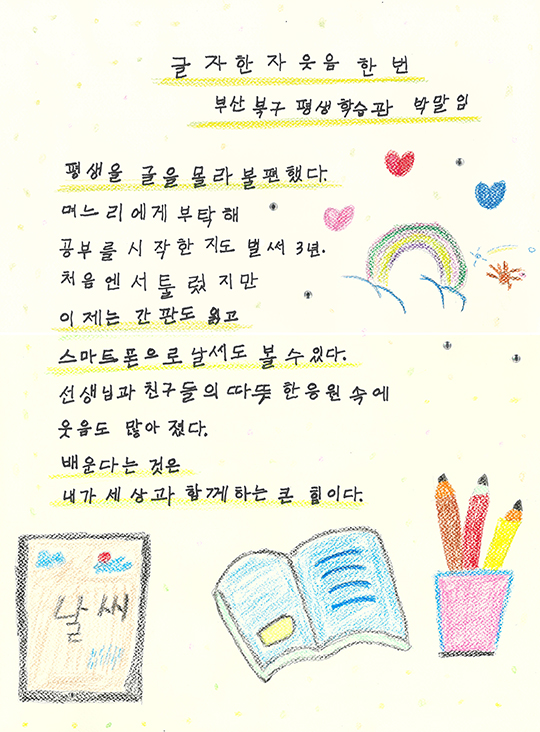 글 자한 자 웃음 한 번
부산 북구 평생학습관 박말임
평생을 글을 몰라 불편했다.
며느리에게 부탁해
공부를 시작한 지도 벌써 3년.
처음엔 서툴렀지만
이제는 간판도 읽고
스마트폰으로 날씨도 볼 수 있다.
선생님과 친구들의 따뜻한 응원 속에
웃음도 많아졌다.
배운다는 것은
내가 세상과 함께하는 큰 힘이다.
날씨